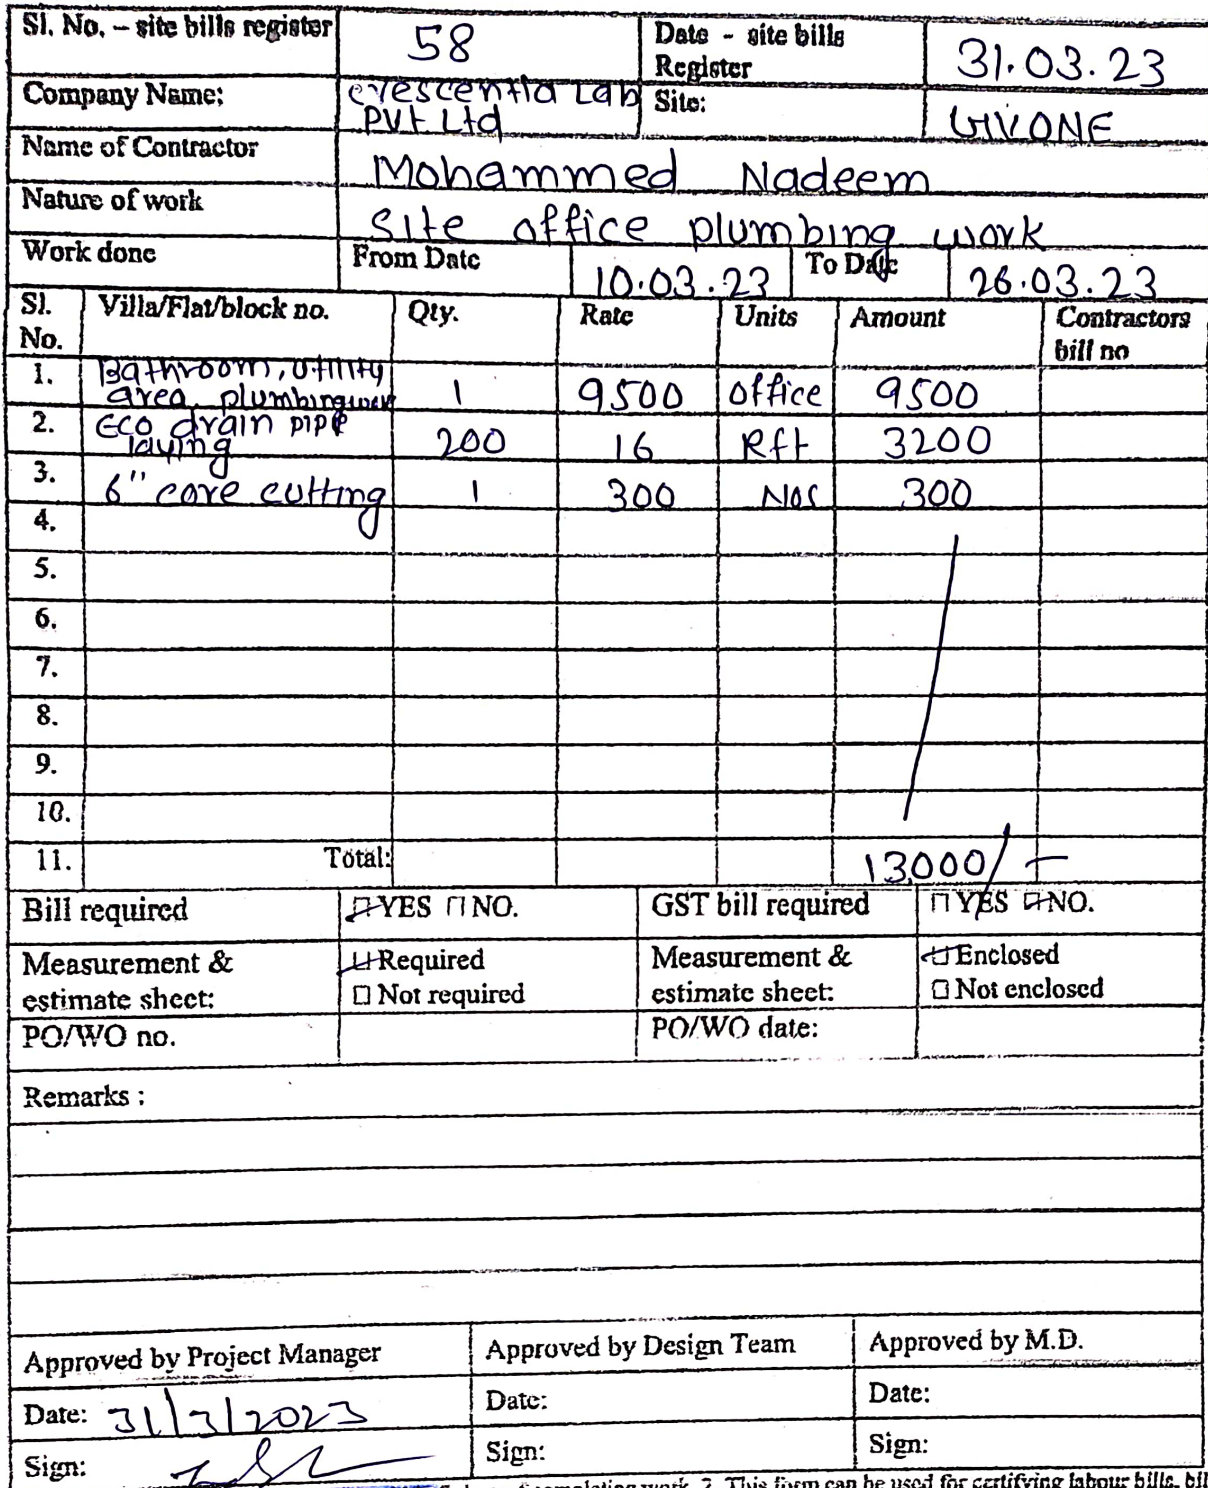 Sl. No. – site bills register 58 Date - site bills Register 31.03.23
Company Name: crescentia Lab Pvt Ltd Site: GVONE
Name of Contractor Mohammed Nadeem
Nature of work Site office plumbing work
Work done From Date 10.03.23 To Date 26.03.23
Sl. No. Villa/Flat/block no. Qty. Rate Units Amount Contractors bill no
1. Bathroom, utility area plumbing work 1 9500 office 9500
2. Eco drain pipe laying 200 16 Rft 3200
3. 6" core cutting 1 300 Nos 300
4.
5.
6.
7.
8.
9.
10.
11. Total: 13,000/-
Bill required YES NO. GST bill required YES NO.
Measurement & estimate sheet: Required Measurement & estimate sheet: Enclosed
Not required Not enclosed
PO/WO no. PO/WO date:
Remarks :
Approved by Project Manager Approved by Design Team Approved by M.D.
Date: 31/3/2023 Date: Date:
Sign: Sign: Sign:
completing work. 2. This form can be used for certifying labour bills,